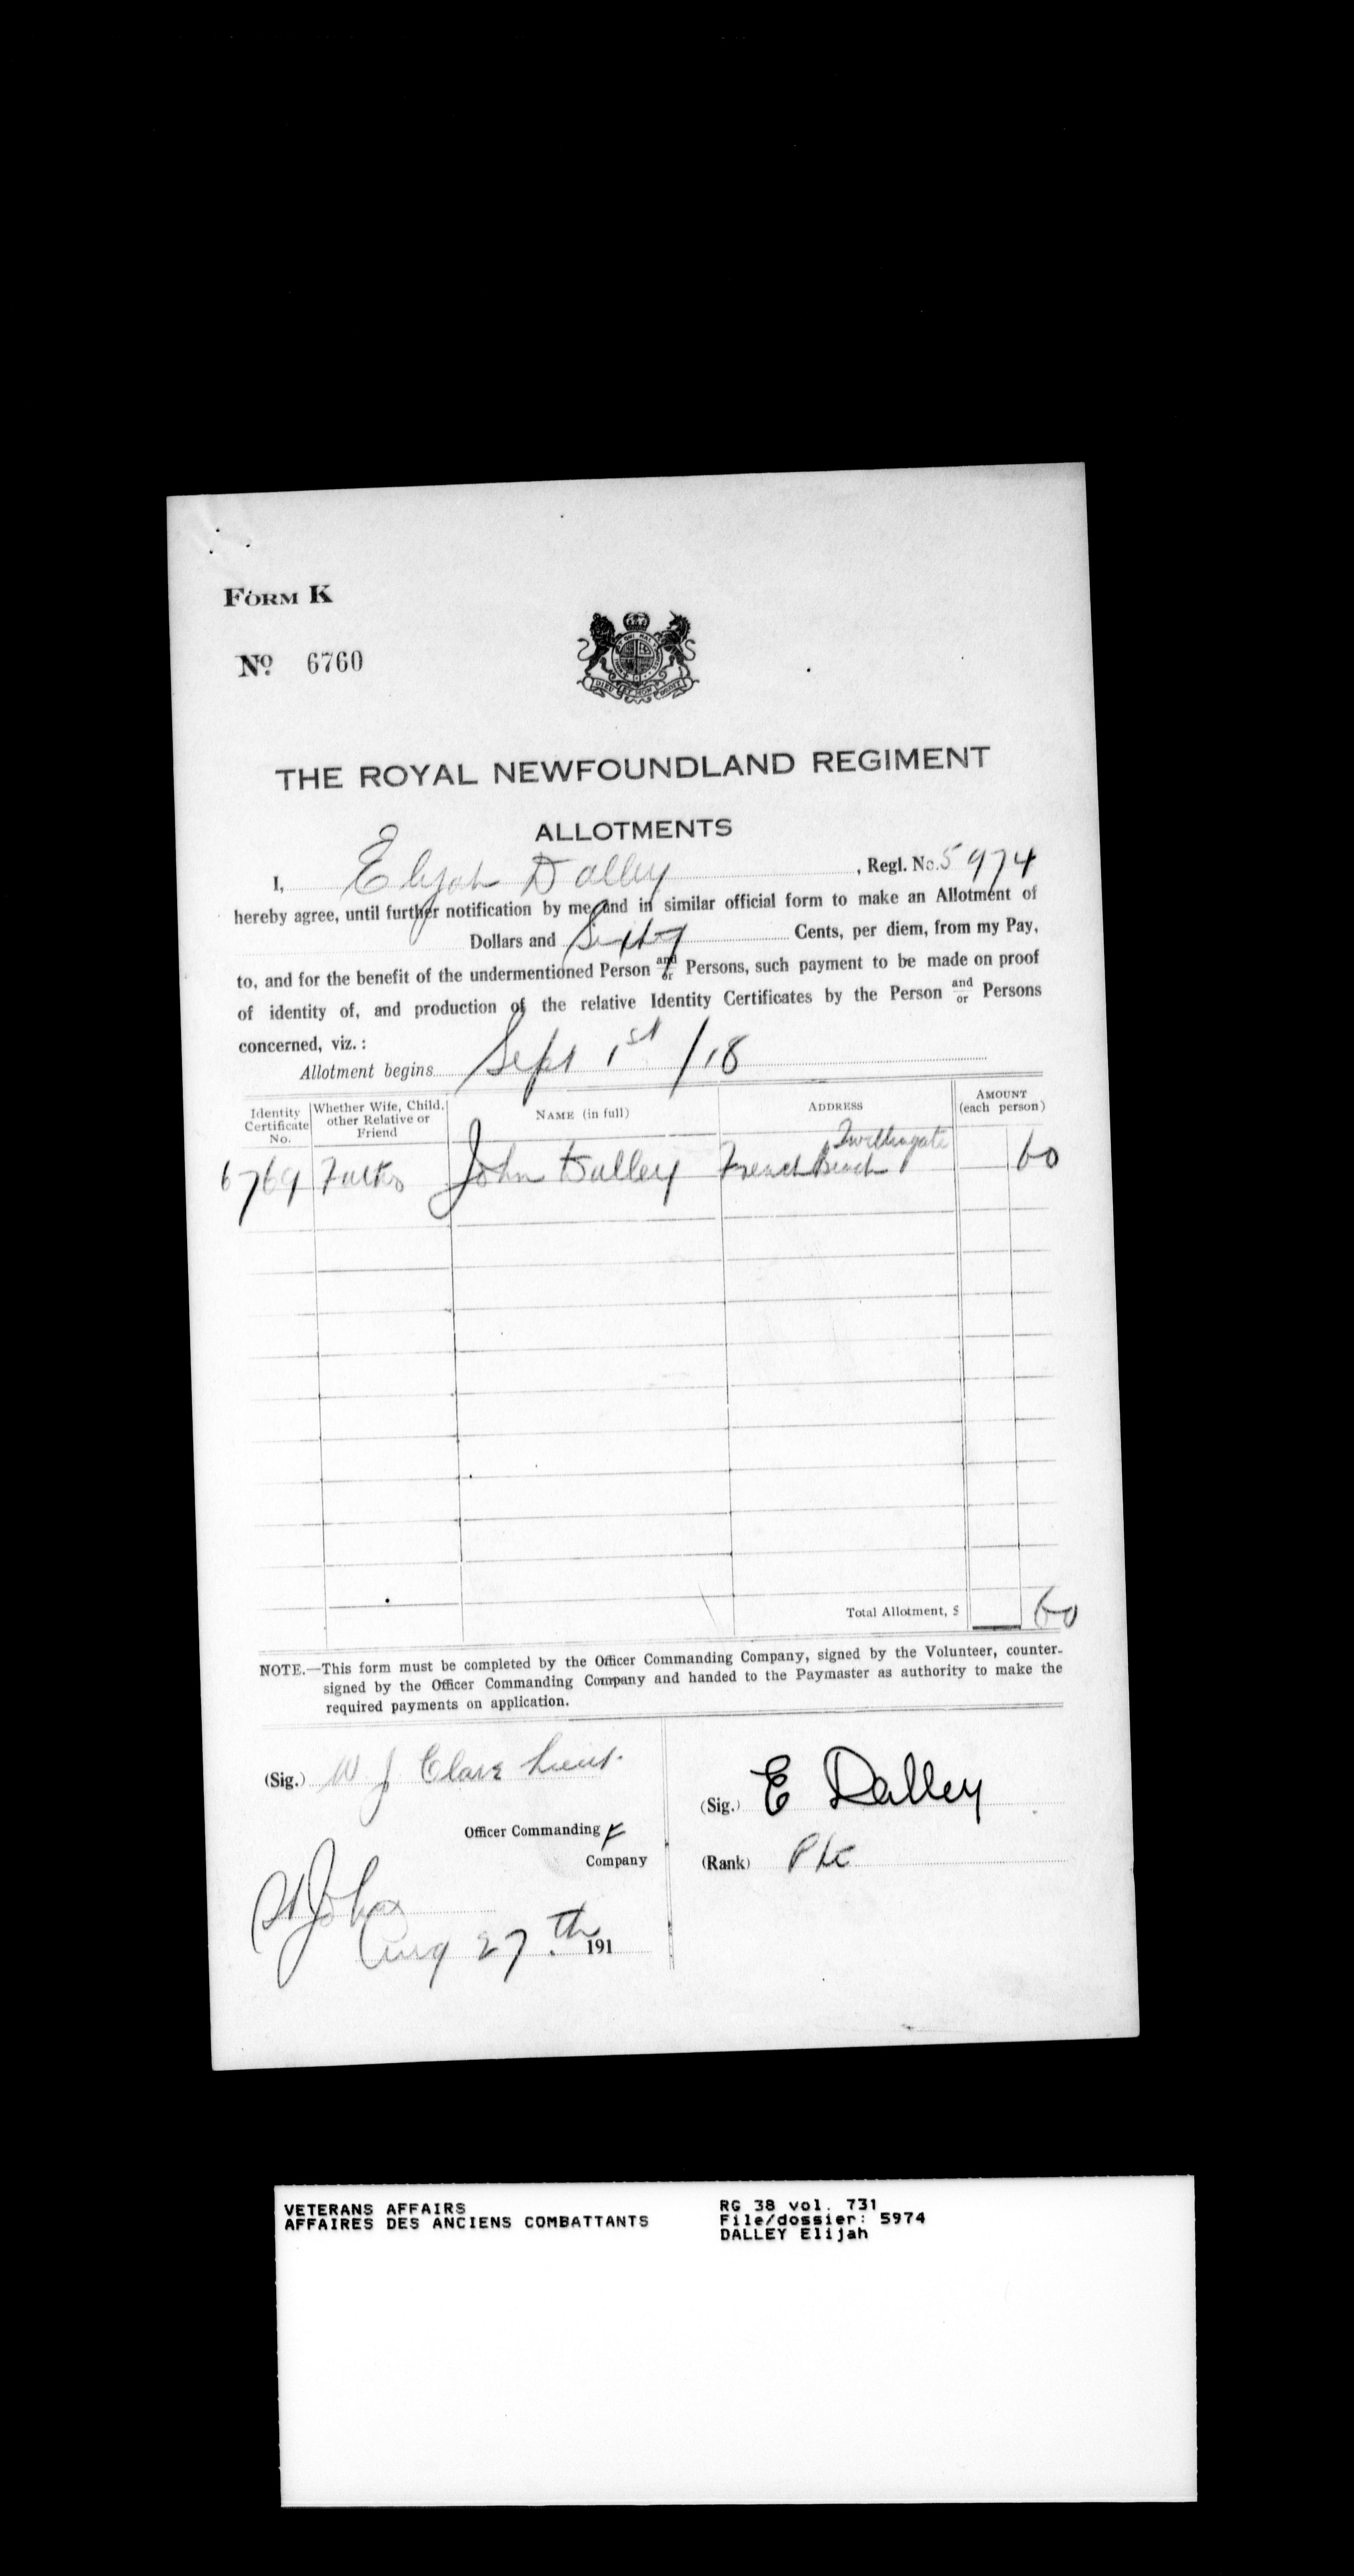 FORM K
No. 6760
THE ROYAL NEWFOUNDLAND REGIMENT
ALLOTMENTS
I, Elijah Dalley, Regl. No. 5974
hereby agree, until further notification by me and in similar official form to make an Allotment of
Dollars and Sixty Cents, per diem, from my Pay,
to, and for the benefit of the undermentioned Person and/or Persons, such payment to be made on proof
of identity of, and production of the relative Identity Certificates by the Person and/or Persons
concerned, viz. :
Allotment begins Sept 1st /18
Identity Certificate No. Whether Wife, Child, other Relative or Friend NAME (in full) ADDRESS AMOUNT (each person)
Twillingate
6769 John Dalley French Beach 60
Total Allotment, $ 60
NOTE.—This form must be completed by the Officer Commanding Company, signed by the Volunteer, counter-
signed by the Officer Commanding Company and handed to the Paymaster as authority to make the
required payments on application.
(Sig.) W J Clare Lieut.
(Sig.) E Dalley
Officer Commanding F
Company
(Rank) Pte
St Johns
Aug 27th 191
VETERANS AFFAIRS
AFFAIRES DES ANCIENS COMBATTANTS
RG 38 vol. 731
File/dossier: 5974
DALLEY Elijah